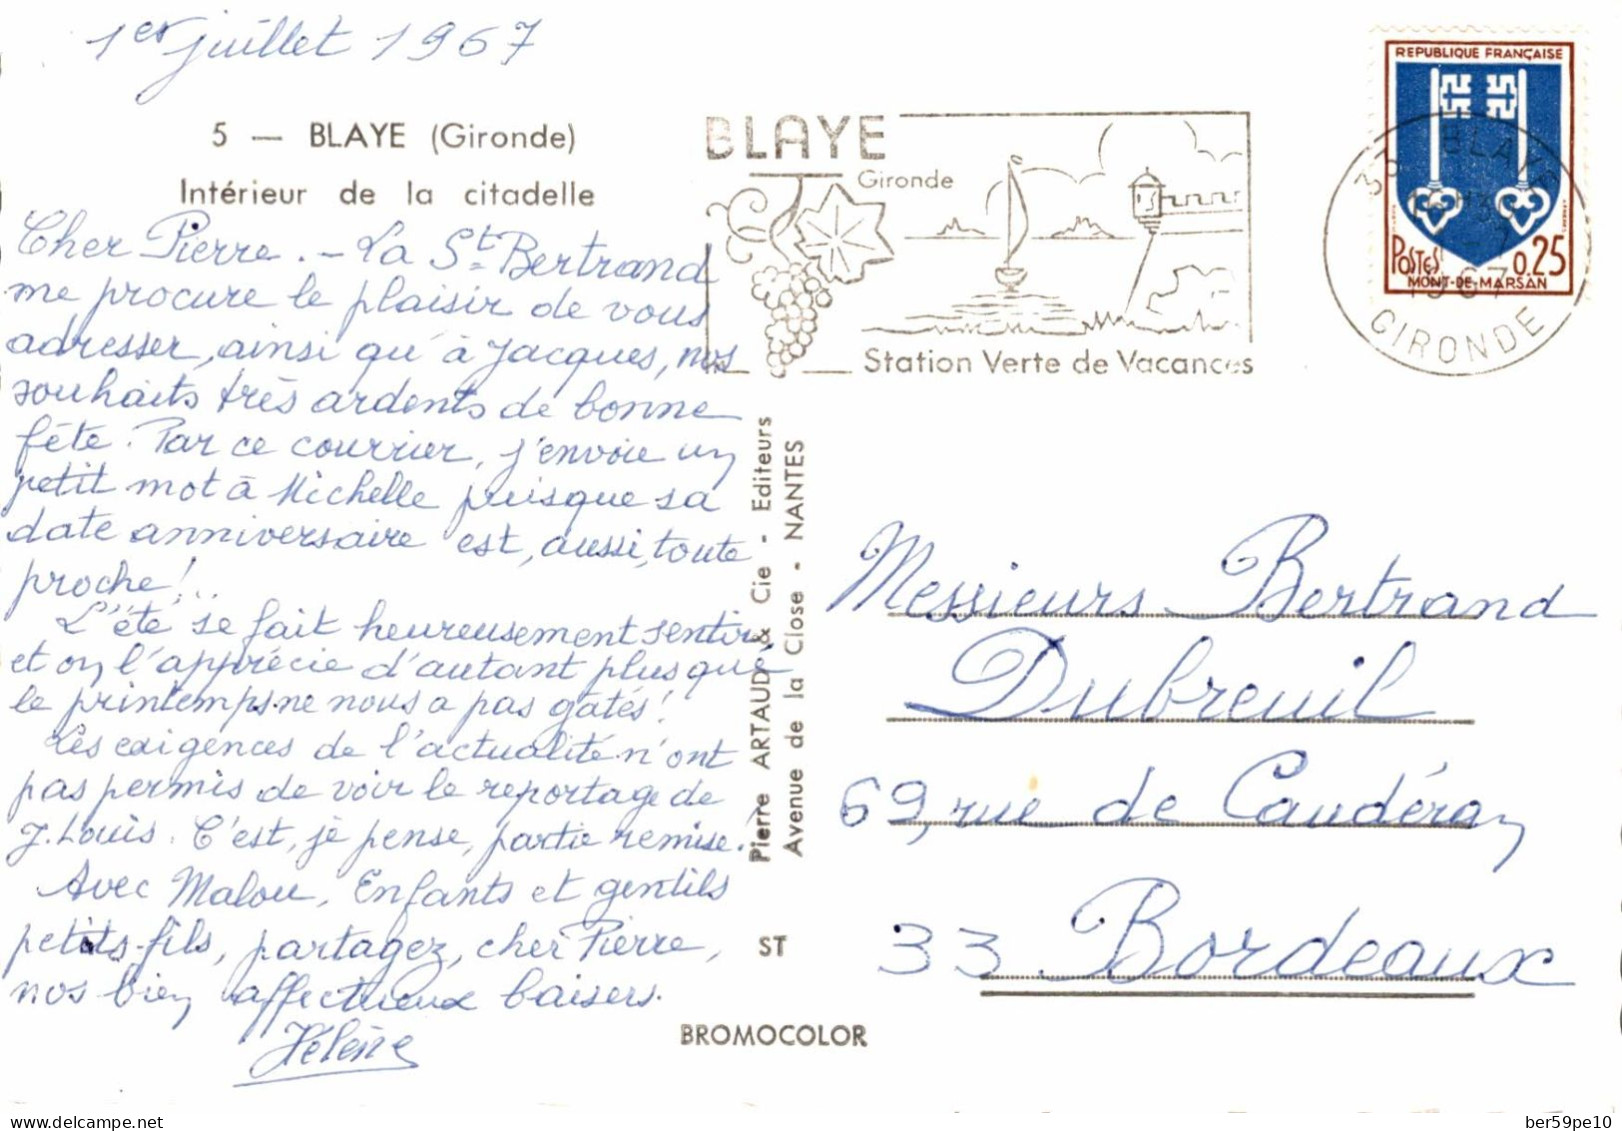 1er juillet 1967
5 — BLAYE (Gironde)
Intérieur de la citadelle
Cher Pierre. - La St Bertrand
me procure le plaisir de vous
adresser, ainsi qu'à Jacques, nos
souhaits très ardents de bonne
fête. Par ce courrier, j'envoie un
petit mot à Michelle puisque sa
date anniversaire est, aussi, toute
proche!..
L'été se fait heureusement sentir
et on l'apprécie d'autant plus que
le printemps ne nous a pas gâtés!
Les exigences de l'actualité n'ont
pas permis de voir le reportage de
J. Louis. C'est, je pense, partie remise.
Avec Malou, Enfants et gentils
petits-fils, partagez, cher Pierre,
nos bien affectueux baisers.
Hélène
BLAYE
Gironde
Station Verte de Vacances
REPUBLIQUE FRANÇAISE
POSTES 0.25
MONT-DE-MARSAN
33 BLAYE
1967
GIRONDE
Pierre ARTAUD & Cie - Editeurs
Avenue de la Close - NANTES
ST
BROMOCOLOR
Messieurs Bertrand
Dubreuil
69, rue de Caudéran
33 Bordeaux
delcampe.net
ber59pe10